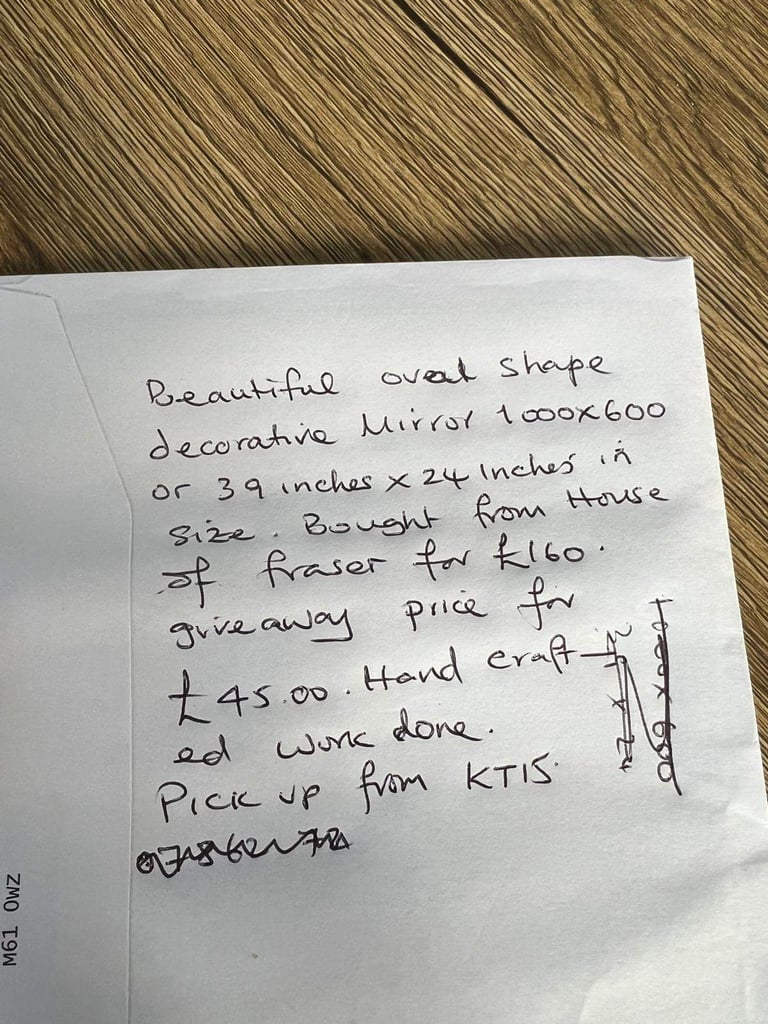 Beautiful oval shape
decorative Mirror 1000x600
or 39 inches x 24 Inches in
size. Bought from House
of fraser for £160.
giveaway price for
£45.00. Hand craft-
ed work done.
Pick up from KT15.
1000 x 600
M61 0WZ